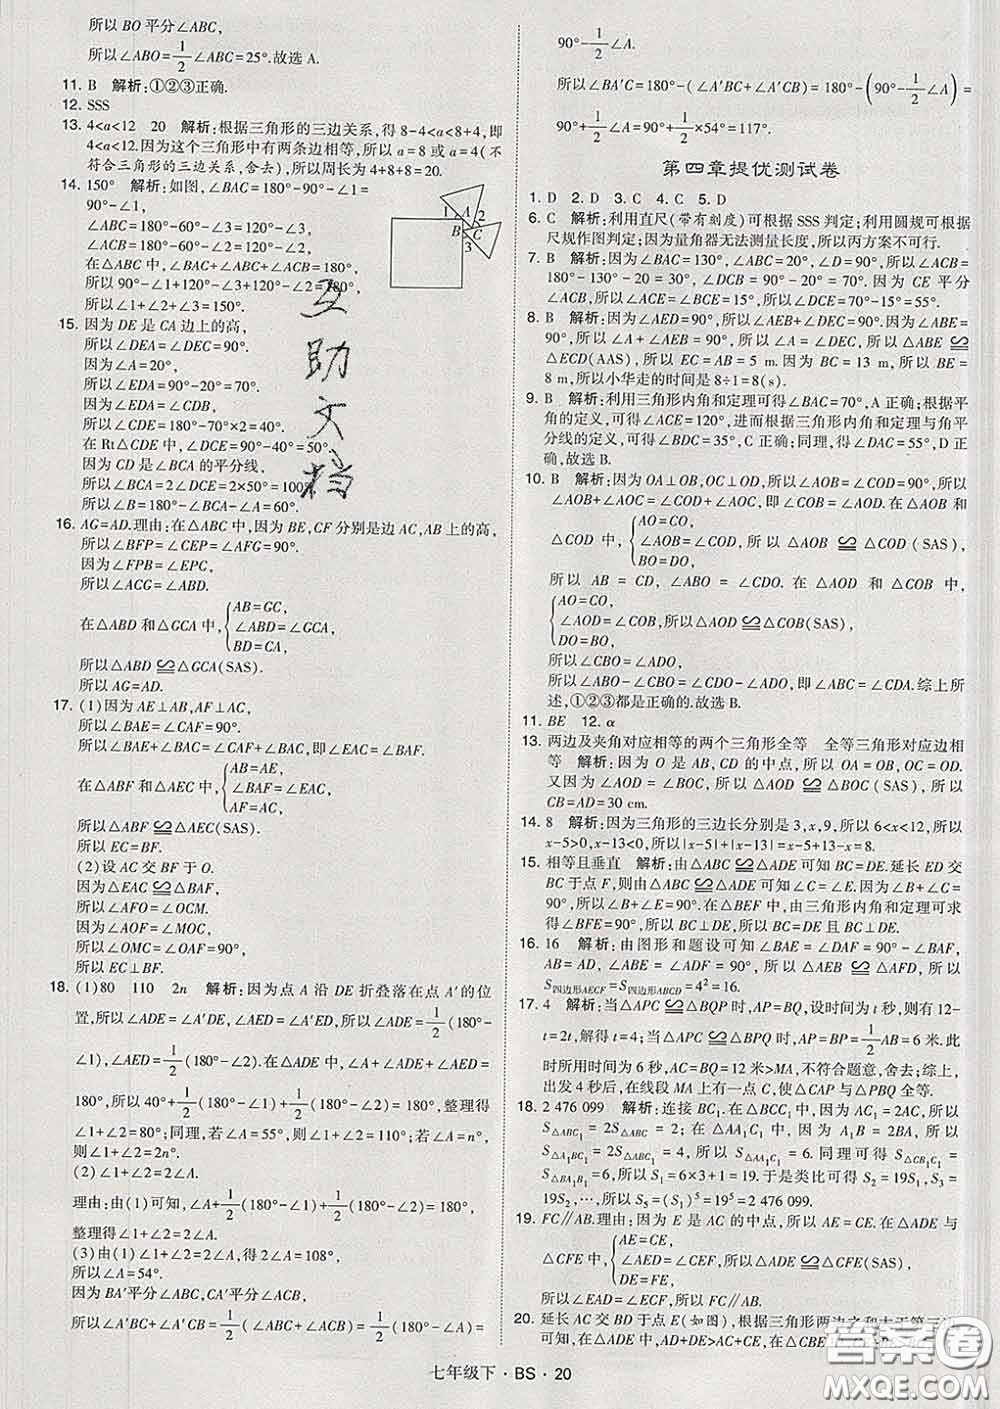 所以 BO 平分∠ABC,
所以∠ABO=1/2∠ABC=25°.故选 A.
11. B 解析:①②③正确.
12. SSS
13. 4<a<12 20 解析:根据三角形的三边关系,得 8-4<a<8+4,即
4<a<12.因为这个三角形中有两条边相等,所以 a=8 或 a=4(不
符合三角形的三边关系,舍去),所以周长=4+8+8=20.
14. 150° 解析:如图,∠BAC=180°-90°-∠1=
90°-∠1,
∠ABC=180°-60°-∠3=120°-∠3,
∠ACB=180°-60°-∠2=120°-∠2,
在△ABC 中,∠BAC+∠ABC+∠ACB=180°,
所以 90°-∠1+120°-∠3+120°-∠2=180°,
所以∠1+∠2+∠3=150°.
1 A 2 B C 3
15. 因为 DE 是 CA 边上的高,
所以∠DEA=∠DEC=90°.
因为∠A=20°,
所以∠EDA=90°-20°=70°.
因为∠EDA=∠CDB,
所以∠CDE=180°-70°×2=40°.
在 Rt△CDE 中,∠DCE=90°-40°=50°.
因为 CD 是∠BCA 的平分线,
所以∠BCA=2∠DCE=2×50°=100°,
所以∠B=180°-∠BCA-∠A=60°.
互助文档
16. AG=AD.理由:在△ABC 中,因为 BE,CF 分别是边 AC,AB 上的高,
所以∠BFP=∠CEP=∠AFG=90°.
因为∠FPB=∠EPC,
所以∠ACG=∠ABD.
在△ABD 和△GCA 中, AB=GC,
∠ABD=∠GCA,
BD=CA,
所以△ABD≌△GCA(SAS).
所以 AG=AD.
17. (1)因为 AE⊥AB,AF⊥AC,
所以∠BAE=∠CAF=90°.
所以∠BAE+∠BAC=∠CAF+∠BAC,即∠EAC=∠BAF.
在△ABF 和△AEC 中, AB=AE,
∠BAF=∠EAC,
AF=AC,
所以△ABF≌△AEC(SAS).
所以 EC=BF.
(2)设 AC 交 BF 于 O.
因为△EAC≌△BAF,
所以∠AFO=∠OCM.
因为∠AOF=∠MOC,
所以∠OMC=∠OAF=90°,
所以 EC⊥BF.
18. (1)80 110 2n 解析:因为点 A 沿 DE 折叠落在点 A′的位
置,所以∠ADE=∠A′DE,∠AED=∠A′ED,所以∠ADE=1/2(180°-
∠1),∠AED=1/2(180°-∠2).在△ADE 中,∠A+∠ADE+∠AED=
180°,所以 40°+1/2(180°-∠1)+1/2(180°-∠2)=180°,整理得
∠1+∠2=80°;同理,若∠A=55°,则∠1+∠2=110°;若∠A=n°,
则∠1+∠2=2n°.
(2)∠1+∠2=2∠A.
理由:由(1)可知,∠A+1/2(180°-∠1)+1/2(180°-∠2)=180°,
整理得∠1+∠2=2∠A.
(3)由(1)∠1+∠2=2∠A,得 2∠A=108°,
所以∠A=54°.
因为 BA′平分∠ABC,CA′平分∠ACB,
所以∠A′BC+∠A′CB=1/2(∠ABC+∠ACB)=1/2(180°-∠A)=
90°-1/2∠A.
所以∠BA′C=180°-(∠A′BC+∠A′CB)=180°-(90°-1/2∠A)=
90°+1/2∠A=90°+1/2×54°=117°.
第四章提优测试卷
1. D 2. D 3. C 4. C 5. D
6. C 解析:利用直尺(带有刻度)可根据 SSS 判定;利用圆规可根据
尺规作图判定;因为量角器无法测量长度,所以丙方案不可行.
7. B 解析:因为∠BAC=130°,∠BAC=20°,∠D=90°,所以∠ACB=
180°-130°-20°=30°,∠DCB=90°-20°=70°.因为 CE 平分
∠ACB,所以∠ACE=∠BCE=15°,所以∠DCE=70°-15°=55°.
8. B 解析:因为∠AED=90°,所以∠AEB+∠DEC=90°.因为∠ABE=
90°,所以∠A+∠AEB=90°,所以∠A=∠DEC,所以△ABE≌
△ECD(AAS),所以 EC=AB=5 m.因为 BC=13 m,所以 BE=
8 m,所以小华走的时间是 8÷1=8(s).
9. B 解析:利用三角形内角和定理可得∠BAC=70°,A 正确;根据平
角的定义,可得∠ACE=120°,进而根据三角形内角和定理与角平
分线的定义,可得∠BDC=35°,C 正确;同理,得∠DAC=55°,D 正
确.故选 B.
10. B 解析:因为 OA⊥OB,OC⊥OD,所以∠AOB=∠COD=90°,所以
∠AOB+∠AOC=∠COD+∠AOC,即∠COB=∠AOD.在△AOB 和
△COD 中, AO=CO,
∠AOB=∠COD,
BO=DO,
所以△AOB≌△COD(SAS),
所以 AB=CD,∠ABO=∠CDO.在△AOD 和△COB 中,
AO=CO,
∠AOD=∠COB,
DO=BO,
所以△AOD≌△COB(SAS),
所以∠CBO=∠ADO,
所以∠ABO-∠CBO=∠CDO-∠ADO,即∠ABC=∠CDA.综上所
述,①②③都是正确的.故选 B.
11. BE 12. α
13. 两边及夹角对应相等的两个三角形全等 全等三角形对应边相
等 解析:因为 O 是 AB,CD 的中点,所以 OA=OB,OC=OD.
又因为∠AOD=∠BOC,所以△AOD≌△BOC(SAS),所以
CB=AD=30 cm.
14. 8 解析:因为三角形的三边长分别是 3,x,9,所以 6<x<12,所以
x-5>0,x-13<0,所以|x-5|+|x-13|=x-5+13-x=8.
15. 相等且垂直 解析:由△ABC≌△ADE 可知 BC=DE.延长 ED 交
BC 于点 F,则由△ABC≌△ADE 可知∠C=∠E.因为∠B+∠C=
90°,所以∠B+∠E=90°.在△BEF 中,由三角形内角和定理可求
得∠BFE=90°,所以 BC⊥DE,所以 BC=DE 且 BC⊥DE.
16. 16 解析:由图形和题设可知∠BAE=∠DAF=90°-∠BAF,
AB=AD,∠ABE=∠D=90°,所以△ABE≌△ADF(ASA),所以
S四边形AECF=S四边形ABCD=4²=16.
17. 4 解析:当△APC≌△BQP 时,AP=BQ,设时间为 t 秒,则有 12-
t=2t,解得 t=4;当△APC≌△BPQ 时,AP=BP=1/2AB=6 米.此
时所用时间为 6 秒,AC=BQ=12 米>MA,不符合题意,舍去;综上,
出发 4 秒后,在线段 MA 上有一点 C,使△CAP 与△PBQ 全等.
18. 2 476 099 解析:连接 BC₁.在△BCC₁ 中,因为 AC₁=2AC,所以
S△ABC₁=2S△ABC=2;在△AA₁C₁ 中,因为 A₁B=2BA,所以
S△A₁BC₁=2S△ABC₁=4,所以 S△AA₁C₁=6.同理可得 S△CB₁C₁=
S△BA₁B₁=6,所以 S₁=6×3+1=19.于是类比可得 S₂=19S₁,S₃=
19S₂,…,所以 S₅=(S₁)⁵=19⁵=2 476 099.
19. FC∥AB.理由:因为 E 是 AC 的中点,所以 AE=CE.在△ADE 与
△CFE 中, AE=CE,
∠AED=∠CEF,所以△ADE≌△CFE(SAS),
DE=FE,
所以∠EAD=∠ECF,所以 FC∥AB.
20. 延长 AC 交 BD 于点 E(如图),根据三角形两边之和大于第三边
可知,在△ADE 中,AD+DE>AC+CE,在△CBE
答案圈
MXQE.COM
七年级下·BS·20